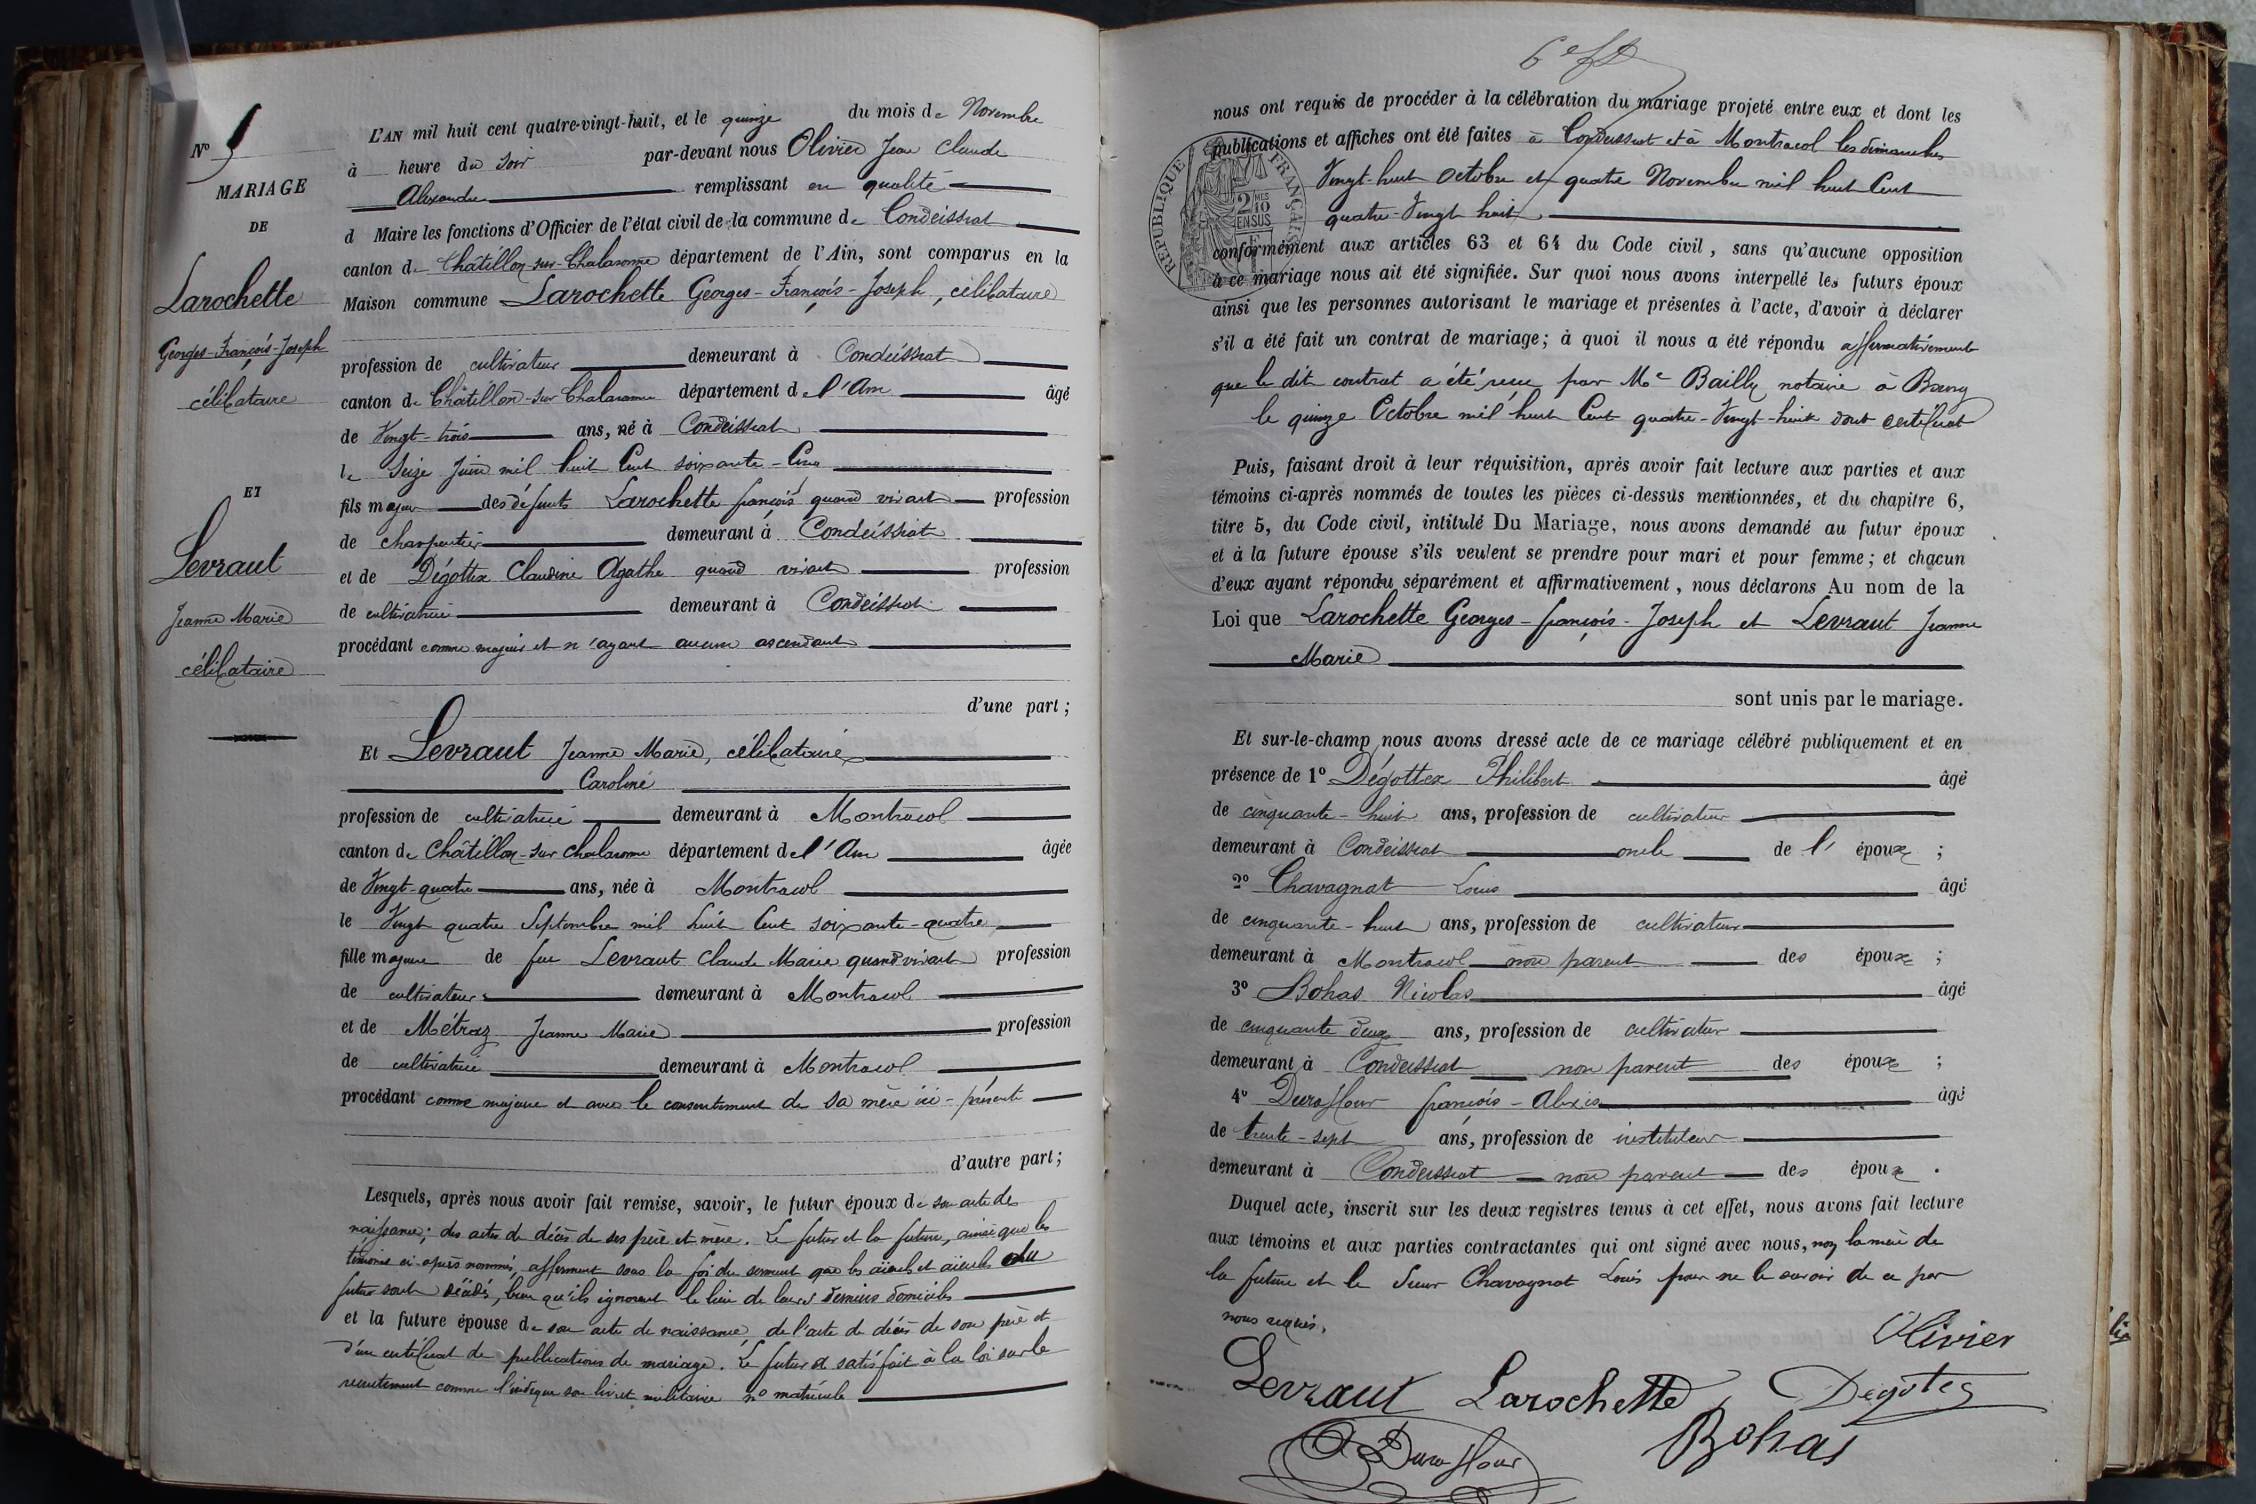 Nº 5
MARIAGE
DE
Larochette
Georges-François-Joseph
célibataire
ET
Levraut
Jeanne Marie
célibataire
L'AN mil huit cent quatre-vingt-huit, et le quinze du mois de Novembre
à heure du soir par-devant nous Olivier Jean Claude
Alexandre remplissant en qualité
d Maire les fonctions d'Officier de l'état civil de la commune de Condeissiat
canton de Châtillon-sur-Chalaronne département de l'Ain, sont comparus en la
Maison commune Larochette Georges-François-Joseph, célibataire
profession de cultivateur demeurant à Condeissiat
canton de Châtillon-sur-Chalaronne département de l'Ain âgé
de Vingt-trois ans, né à Condeissiat
le Seize Juin mil huit Cent soixante-Cinq
fils majeur des défunts Larochette françois quand vivait profession
de charpentier demeurant à Condeissiat
et de Dégottex Claudine Agathe quand vivait profession
de cultivatrice demeurant à Condeissiat
procédant comme majeur et n'ayant aucun ascendant
d'une part;
Et Levraut Jeanne Marie, célibataire
Caroline
profession de cultivatrice demeurant à Montracol
canton de Châtillon-sur-Chalaronne département de l'Ain âgée
de Vingt-quatre ans, née à Montracol
le Vingt quatre Septembre mil huit Cent soixante-quatre
fille majeure de feu Levraut Claude Marie quand vivait profession
de cultivateur demeurant à Montracol
et de Métraz Jeanne Marie profession
de cultivatrice demeurant à Montracol
procédant comme majeure et avec le consentement de sa mère ici-présente
d'autre part;
Lesquels, après nous avoir fait remise, savoir, le futur époux de son acte de
naissance; des actes de décès de ses père et mère. Le futur et la future, ainsi que les
témoins ci-après nommés, affirment sous la foi du serment que les aïeuls et aïeules du
futur sont décédés, bien qu'ils ignorent le lieu de leurs derniers domiciles
et la future épouse de son acte de naissance, de l'acte de décès de son père et
d'un certificat de publications de mariage. Le futur a satisfait à la loi sur le
recrutement comme l'indique son livret militaire nº matricule
6e
nous ont requis de procéder à la célébration du mariage projeté entre eux et dont les
publications et affiches ont été faites à Condeissiat et à Montracol les dimanches
Vingt-huit Octobre et quatre Novembre mil huit Cent
quatre-Vingt huit
RÉPUBLIQUE FRANÇAISE
2 MES 10 EN SUS
conformément aux articles 63 et 64 du Code civil, sans qu'aucune opposition
à ce mariage nous ait été signifiée. Sur quoi nous avons interpellé les futurs époux
ainsi que les personnes autorisant le mariage et présentes à l'acte, d'avoir à déclarer
s'il a été fait un contrat de mariage; à quoi il nous a été répondu affirmativement
que le dit contrat a été reçu par Me Bailly notaire à Bourg
le quinze Octobre mil huit Cent quatre-Vingt-huit dont certificat
Puis, faisant droit à leur réquisition, après avoir fait lecture aux parties et aux
témoins ci-après nommés de toutes les pièces ci-dessus mentionnées, et du chapitre 6,
titre 5, du Code civil, intitulé Du Mariage, nous avons demandé au futur époux
et à la future épouse s'ils veulent se prendre pour mari et pour femme; et chacun
d'eux ayant répondu séparément et affirmativement, nous déclarons Au nom de la
Loi que Larochette Georges-françois-Joseph et Levraut Jeanne
Marie
sont unis par le mariage.
Et sur-le-champ nous avons dressé acte de ce mariage célébré publiquement et en
présence de 1º Dégottex Philibert âgé
de cinquante-huit ans, profession de cultivateur
demeurant à Condeissiat oncle de l'époux;
2º Chavagnat Louis âgé
de cinquante-huit ans, profession de cultivateur
demeurant à Montracol non parent des époux;
3º Bohas Nicolas âgé
de cinquante deux ans, profession de cultivateur
demeurant à Condeissiat non parent des époux;
4º Duraffour françois-Alexis âgé
de trente-sept ans, profession de instituteur
demeurant à Condeissiat non parent des époux.
Duquel acte, inscrit sur les deux registres tenus à cet effet, nous avons fait lecture
aux témoins et aux parties contractantes qui ont signé avec nous, non la mère de
la future et le Sieur Chavagnat Louis pour ne le savoir de ce par
nous requis.
Olivier
Levraut Larochette Degotex
Duraffour Bohas